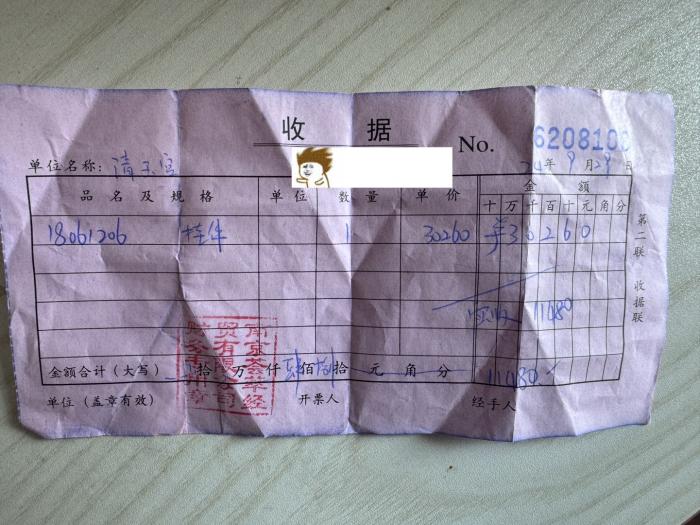 收 据 No. 6208100
单位名称：清玉宫 24年9月29日
品名及规格 单位 数量 单价 金额
十万千百十元角分
18061206 挂件 1 30260 ¥30260
实收 11480
金额合计（大写） 拾 万 仟 肆佰捌拾 元 角 分 11480
单位（盖章有效） 开票人 经手人
第二联 收据联